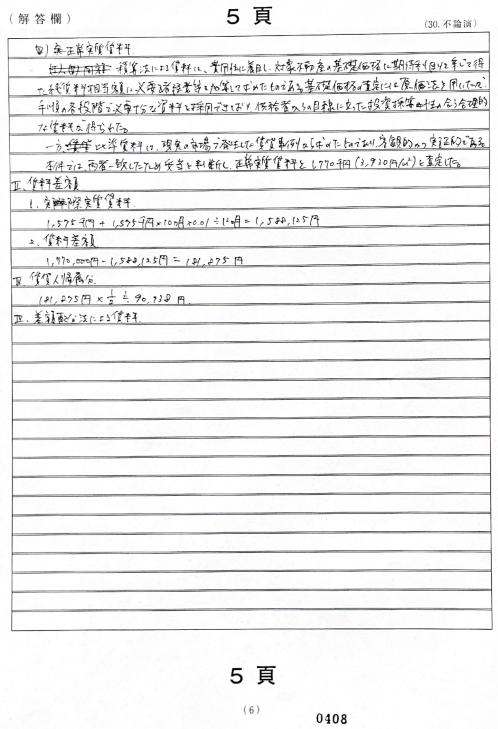 (解答欄)
5頁
(30.不論演)
(4) 正常実質賃料
積算法による賃料は、費用性に着目し、対象不動産の基礎価格に期待利回りを乗じて得
た純賃料相当額に必要諸経費等を加算して求めたものである。基礎価格の査定には原価法を用いたが、
手順の各段階で必要十分な資料を採用できており、供給者からの目線に立った投資採算性の合う合理的
な賃料が得られた。
一方、比準賃料は、現実の市場で発生した賃貸事例から求めたものであり、客観的かつ実証的である。
本件では、両者一致したため妥当と判断し、正常実質賃料を1,770千円(3,930円/㎡)と査定した。
Ⅱ.賃料差額
1.実際実質賃料
1,575千円+1,575千円×10ヶ月×0.01÷12ヶ月=1,588,125円
2.賃料差額
1,770,000円-1,588,125円=181,875円
Ⅲ.賃貸人帰属分
181,875円×1/2≒90,938円
Ⅳ.差額配分法による賃料
5頁
(6)
0408